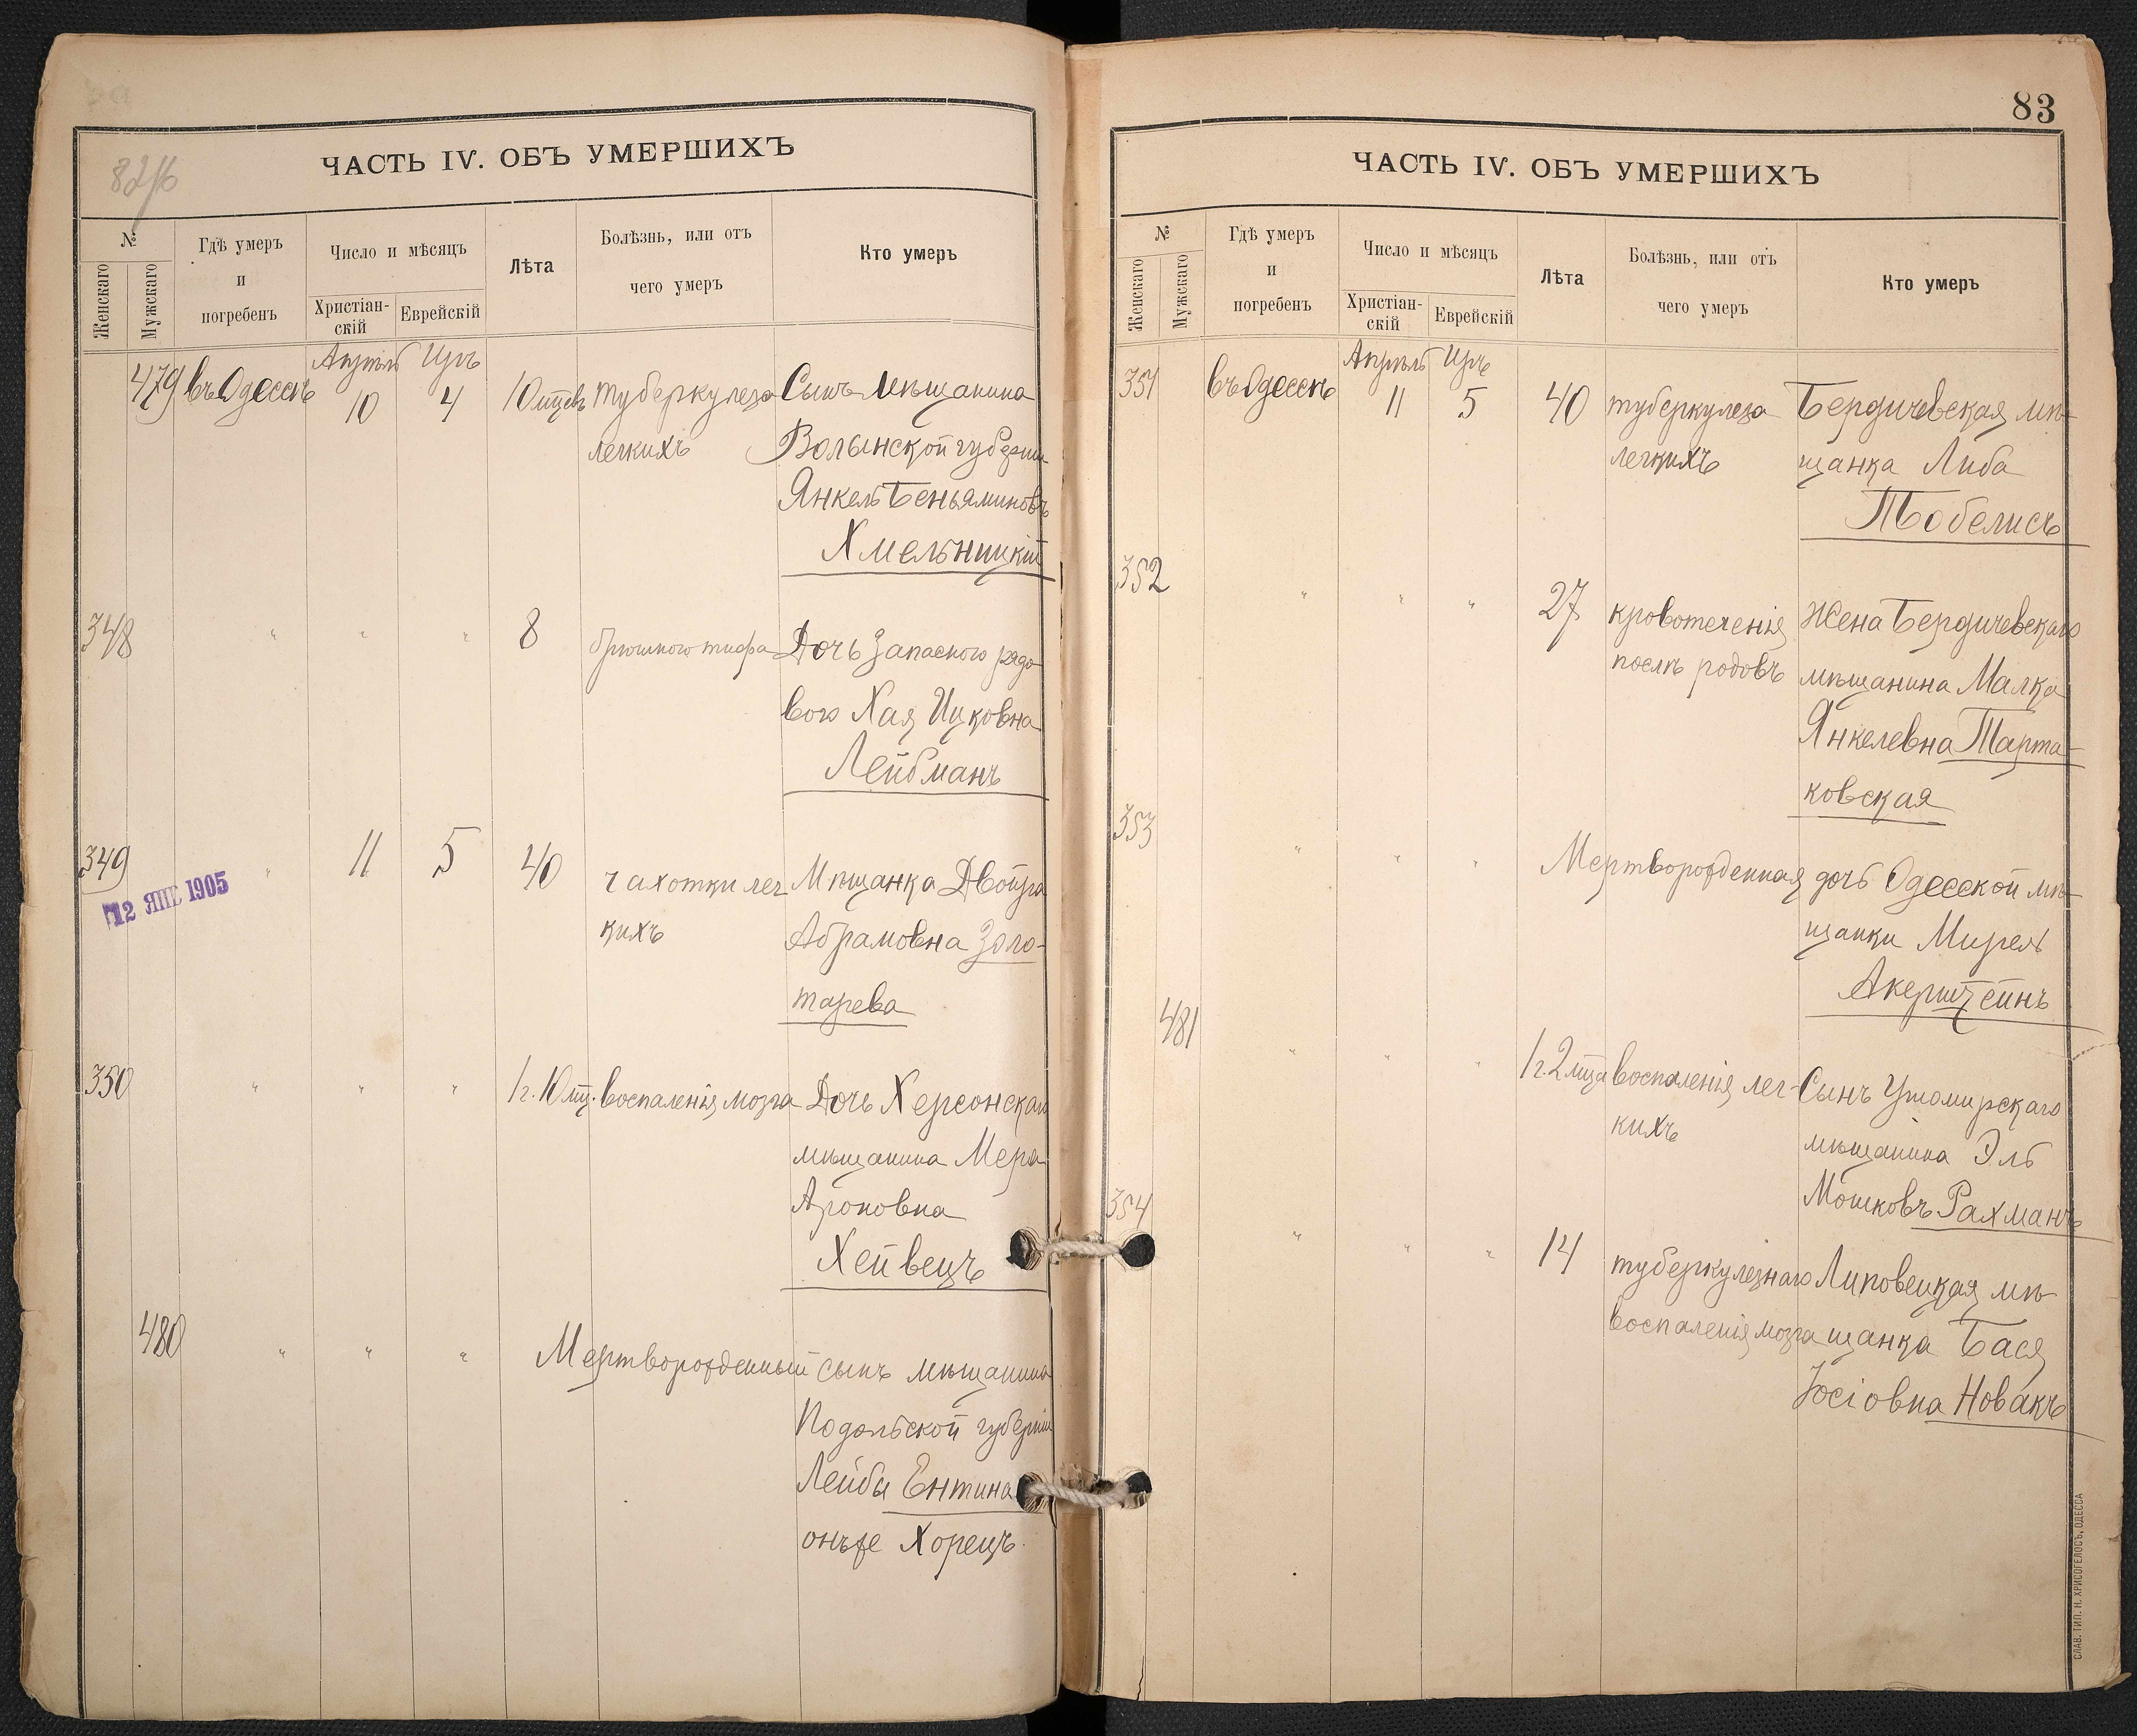 82/об
ЧАСТЬ IV. ОБЪ УМЕРШИХЪ
№
Женскаго
Мужскаго
Гдѣ умеръ
и
погребенъ
Число и мѣсяцъ
Христіан-
скій
Еврейскій
Лѣта
Болѣзнь, или отъ
чего умеръ
Кто умеръ
Апрѣль Иръ
479 въ Одессѣ 10 4 10 мцевъ туберкулеза Сынъ мѣщанина
легкихъ Волынской губерніи
Янкель Беньяминовъ
Хмельницкій
348 " " " 8 брюшного тифа Дочь запасного рядо
вого Хая Ицковна
Лейбманъ
349 " 11 5 40 чахотки лег Мѣщанка Двойра
12 ЯНВ 1905
кихъ Абрамовна Золо-
тарева
350 " " " 1 г. 10 мц. воспаленія мозга Дочь Херсонскаго
мѣщанина Мера
Ароновна
Хейвецъ
480 " " " Мертворожденный сынъ мѣщанина
Подольской губерніи
Лейбы Ентина
онъ же Хорецъ.
83
ЧАСТЬ IV. ОБЪ УМЕРШИХЪ
№
Женскаго
Мужскаго
Гдѣ умеръ
и
погребенъ
Число и мѣсяцъ
Христіан-
скій
Еврейскій
Лѣта
Болѣзнь, или отъ
чего умеръ
Кто умеръ
Апрѣль Иръ
351 въ Одессѣ 11 5 40 туберкулеза Бердичевская мѣ-
легкихъ щанка Либа
Тобелисъ
352 " " " 27 кровотеченія Жена Бердичевскаго
послѣ родовъ мѣщанина Малка
Янкелевна Тарта-
ковская
353 " " " Мертворожденная дочь Одесской мѣ-
щанки Мирель
Акерштейнъ
481 " " " 1 г. 2 мца воспаленія лег- Сынъ Ушомирскаго
кихъ мѣщанина Эль
Мошковъ Рахманъ
354 " " " 14 туберкулезнаго Липовецкая мѣ-
воспаленія мозга щанка Бася
Іосіовна Новакъ
СЛАВ. ТИП. Н. ХРИСОГЕЛОСЪ, ОДЕССА